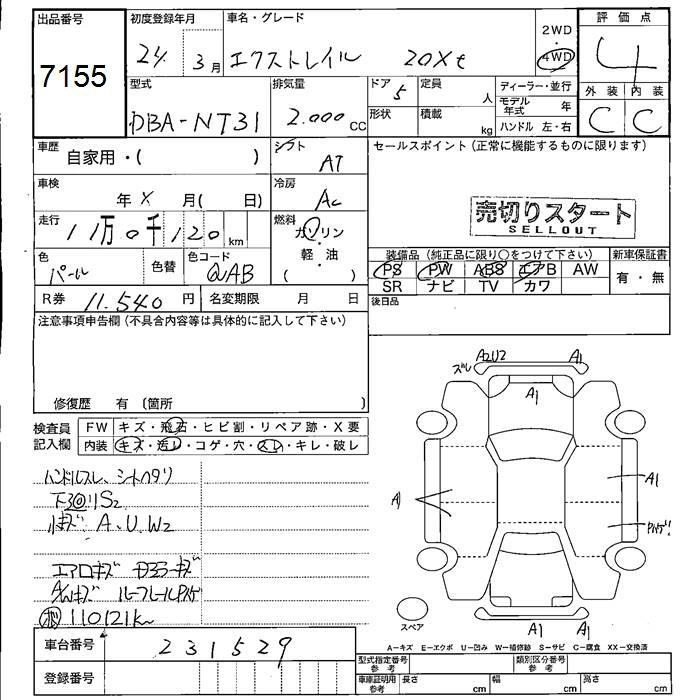 出品番号
7155
初度登録年月
24年 3月
車名・グレード
エクストレイル 20Xt
2WD・4WD
評価点
4
外装 内装
C C
型式
DBA-NT31
排気量
2.000 CC
ドア 5
定員 人
形状
積載 kg
ディーラー・並行
モデル年式 年
ハンドル 左・右
車歴
自家用・( )
シフト
AT
車検
年 X 月( 日)
冷房
AC
走行
11万0千120 km
燃料
ガソリン・軽・油
( )
色
パール
色替
色コード
QAB
R券 11.540円
名変期限 月 日
セールスポイント(正常に機能するものに限ります)
売切りスタート
SELLOUT
装備品(純正品に限り〇をつけて下さい)
PS PW ABS エアB AW
SR ナビ TV カワ
新車保証書
有・無
後日品
注意事項申告欄(不具合内容等は具体的に記入して下さい)
修復歴 有 (箇所 )
検査員記入欄
FW キズ・飛石・ヒビ割・リペア跡・X要
内装 キズ・汚レ・コゲ・穴・スレ・キレ・破レ
ハンドルスレ、シートヘタリ
下3回リS2
小キズ A、U、W2
エアロキズ ドアミラーキズ
A/Wキズ ルーフレールハゲ
110121km
ズレ
A2U2
A1
A1
A1
A1
ハゲ
A1
A1
A1
スペア
A-キズ E-エクボ U-凹み W-補修跡 S-サビ C-腐食 XX-交換済
車台番号
231529
登録番号
型式指定番号 参考
類別区分番号 参考
車庫証明用 参考
長さ cm
幅 cm
高さ cm